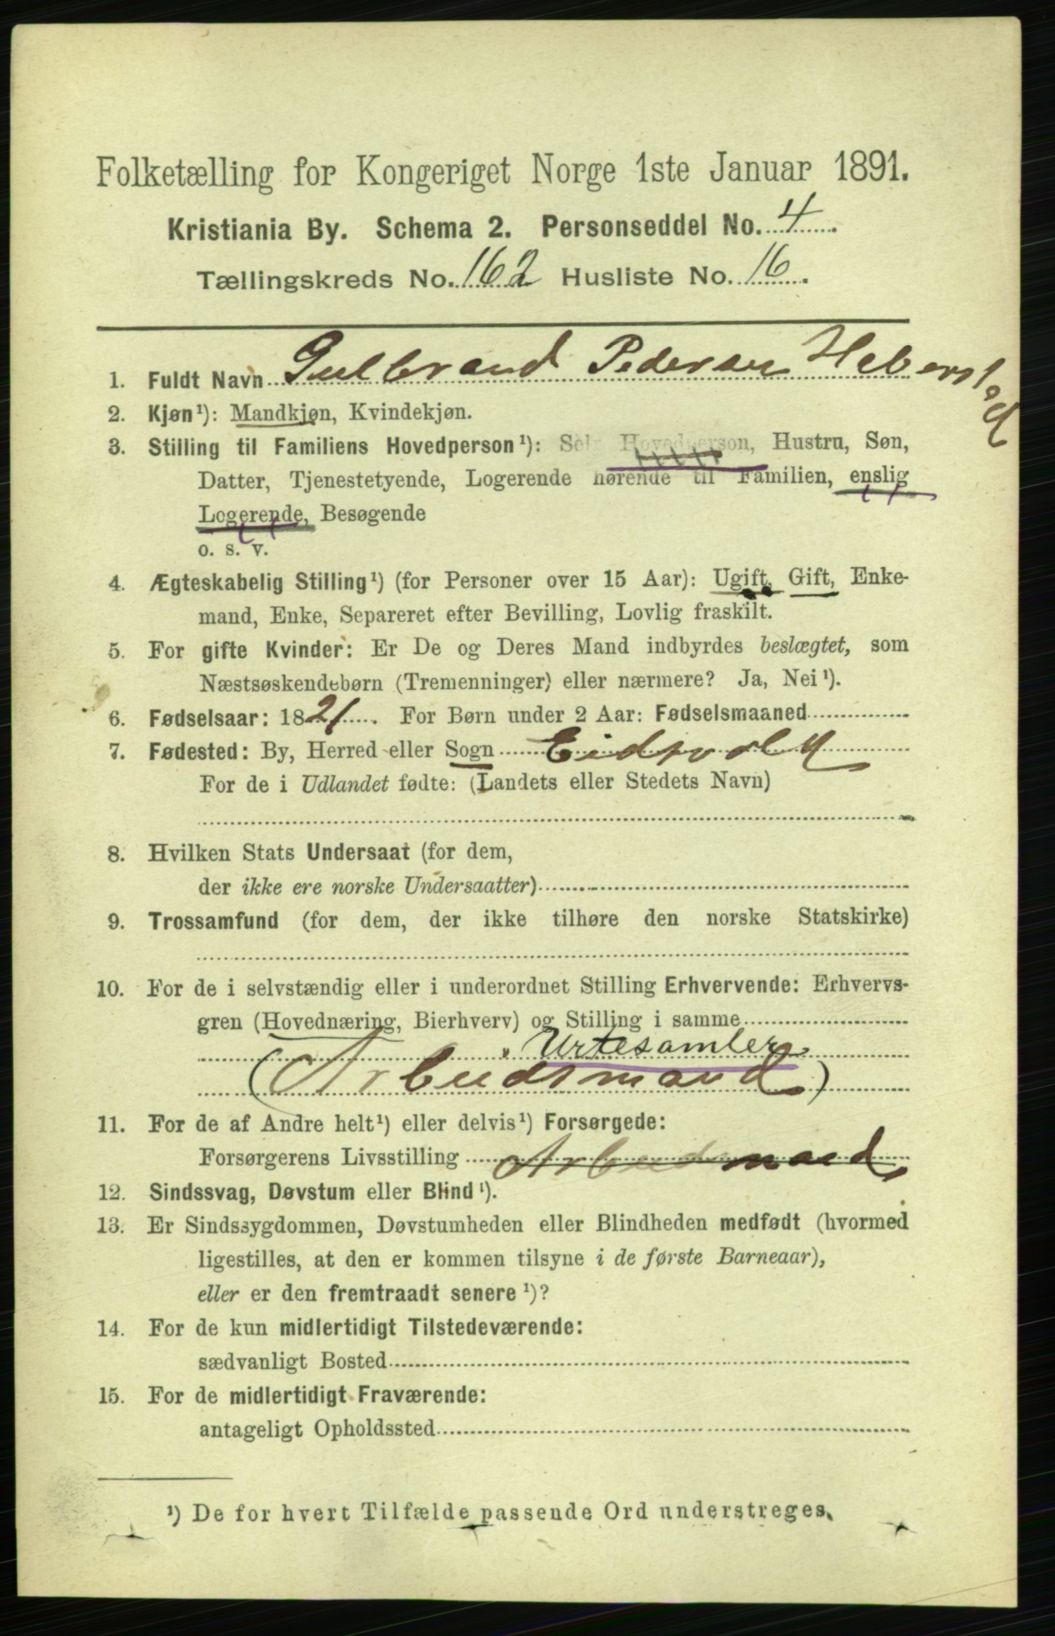 Folketælling for Kongeriget Norge 1ste Januar 1891.
Kristiania By. Schema 2. Personseddel No. 4.
Tællingskreds No. 162 Husliste No. 16.
1. Fuldt Navn Gulbrand Pedersen Heberstad
2. Kjøn¹): Mandkjøn, Kvindekjøn.
3. Stilling til Familiens Hovedperson¹): Selv Hovedperson, Hustru, Søn,
Datter, Tjenestetyende, Logerende hørende til Familien, enslig
Logerende, Besøgende
o. s. v.
4. Ægteskabelig Stilling¹) (for Personer over 15 Aar): Ugift, Gift, Enke-
mand, Enke, Separeret efter Bevilling, Lovlig fraskilt.
5. For gifte Kvinder: Er De og Deres Mand indbyrdes beslægtet, som
Næstsøskendebørn (Tremenninger) eller nærmere? Ja, Nei¹).
6. Fødselsaar: 1821. For Børn under 2 Aar: Fødselsmaaned
7. Fødested: By, Herred eller Sogn Eidsvold
For de i Udlandet fødte: (Landets eller Stedets Navn)
8. Hvilken Stats Undersaat (for dem,
der ikke ere norske Undersaatter)
9. Trossamfund (for dem, der ikke tilhøre den norske Statskirke)
10. For de i selvstændig eller i underordnet Stilling Erhvervende: Erhvervs-
gren (Hovednæring, Bierhverv) og Stilling i samme
Urtesamler
(Arbeidsmand)
11. For de af Andre helt¹) eller delvis¹) Forsørgede:
Forsørgerens Livsstilling Arbeidsmand
12. Sindssvag, Døvstum eller Blind¹).
13. Er Sindssygdommen, Døvstumheden eller Blindheden medfødt (hvormed
ligestilles, at den er kommen tilsyne i de første Barneaar),
eller er den fremtraadt senere¹)?
14. For de kun midlertidigt Tilstedeværende:
sædvanligt Bosted
15. For de midlertidigt Fraværende:
antageligt Opholdssted
¹) De for hvert Tilfælde passende Ord understreges.